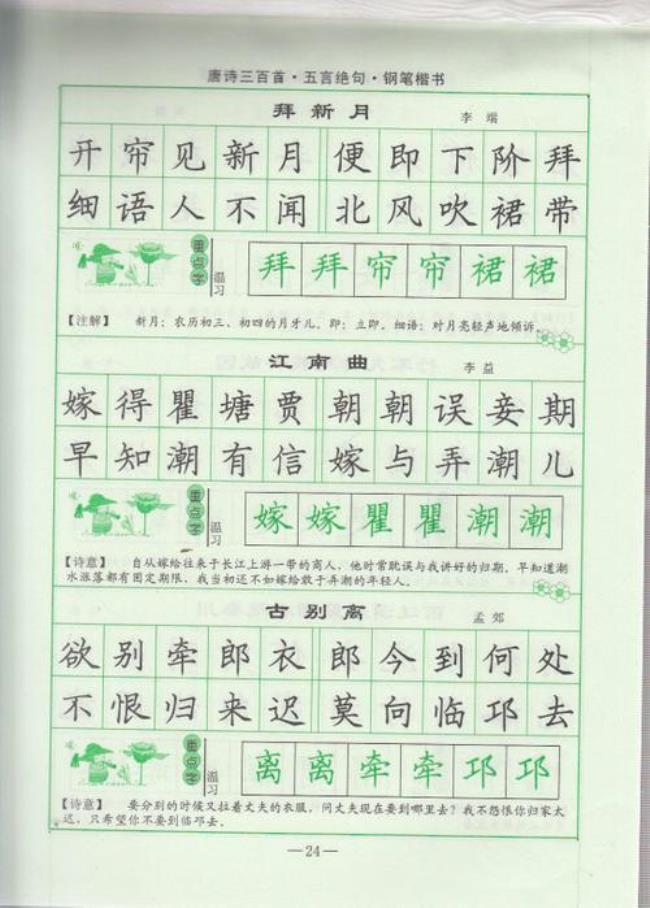 唐诗三百首·五言绝句·钢笔楷书
拜新月 李端
开帘见新月便即下阶拜
细语人不闻北风吹裙带
重点字 温习 拜拜帘帘裙裙
【注解】 新月：农历初三、初四的月牙儿。即：立即。细语：对月亮轻声地倾诉。
江南曲 李益
嫁得瞿塘贾朝朝误妾期
早知潮有信嫁与弄潮儿
重点字 温习 嫁嫁瞿瞿潮潮
【诗意】 自从嫁给往来于长江上游一带的商人，他时常耽误与我讲好的归期。早知道潮
水涨落都有固定期限，我当初还不如嫁给敢于弄潮的年轻人。
古别离 孟郊
欲别牵郎衣郎今到何处
不恨归来迟莫向临邛去
重点字 温习 离离牵牵邛邛
【诗意】 要分别的时候又拉着丈夫的衣服，问丈夫现在要到哪里去？我不怨恨你归家太
迟，只希望你不要到临邛去。
—24—